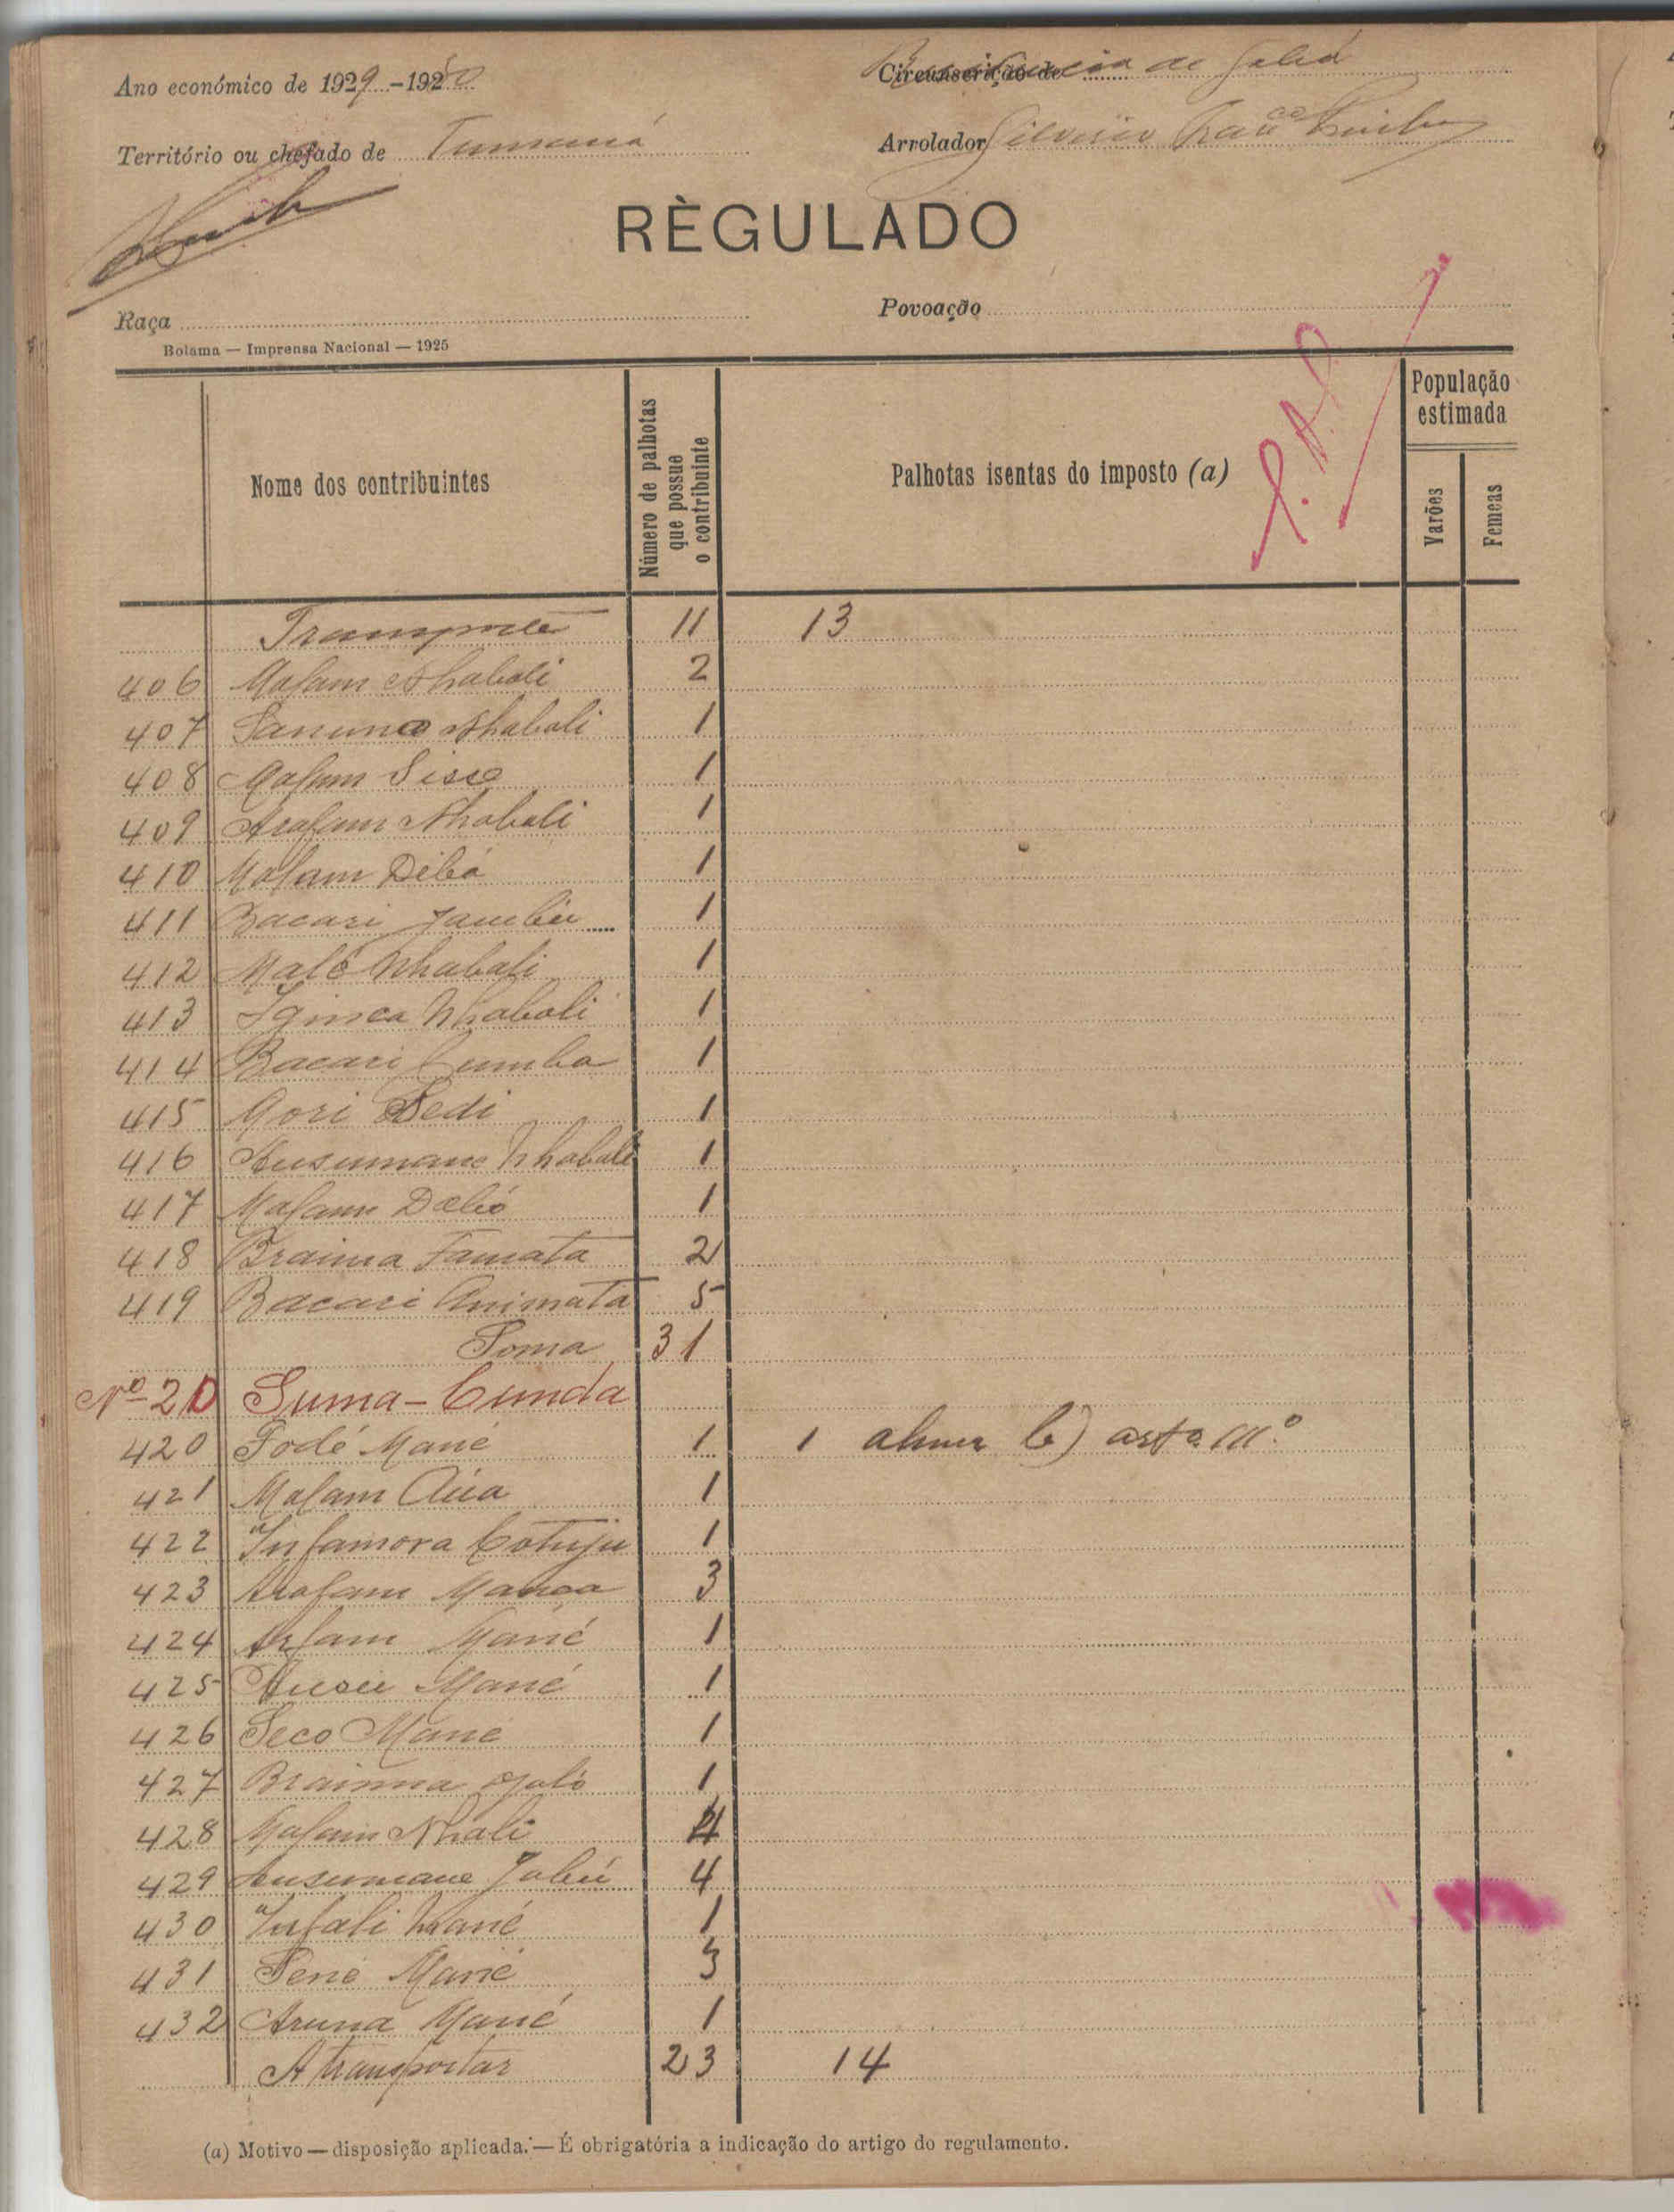 Ano económico de 1929-1930
Circunscrição de
Território ou chefado de Tumaná
Arrolador
RÈGULADO
Raça
Povoação
Bolama — Imprensa Nacional — 1925
Nome dos contribuintes
Número de palhotas que possue o contribuinte
Palhotas isentas do imposto (a)
População estimada
Varões
Femeas
Transporte 11 13
406 Malam Nhabali 2
407 Sanuna Nhabali 1
408 Malam Sisse 1
409 Arafam Nhabali 1
410 Malam Dibá 1
411 Bacari 1
412 Malé Nhabali 1
413 Nhabali 1
414 Bacari Cumba 1
415 Mori Sedi 1
416 Ansumane Nhabali 1
417 Malam Dabó 1
418 Braima Famata 2
419 Bacari Animata 5
Soma 31
Nº 20 Suma-Cunda
420 Fodé Mané 1 1 b) artº
421 Malam Aua 1
422 Infamora 1
423 Arafam Manca 3
424 Arfam Mané 1
425 Mané 1
426 Seco Mané 1
427 Braima 1
428 Malam Nhali 4
429 Ansumane 4
430 Infali Mané 1
431 Sene Mané 3
432 Aruna Mané 1
A transportar 23 14
(a) Motivo — disposição aplicada. — É obrigatória a indicação do artigo do regulamento.